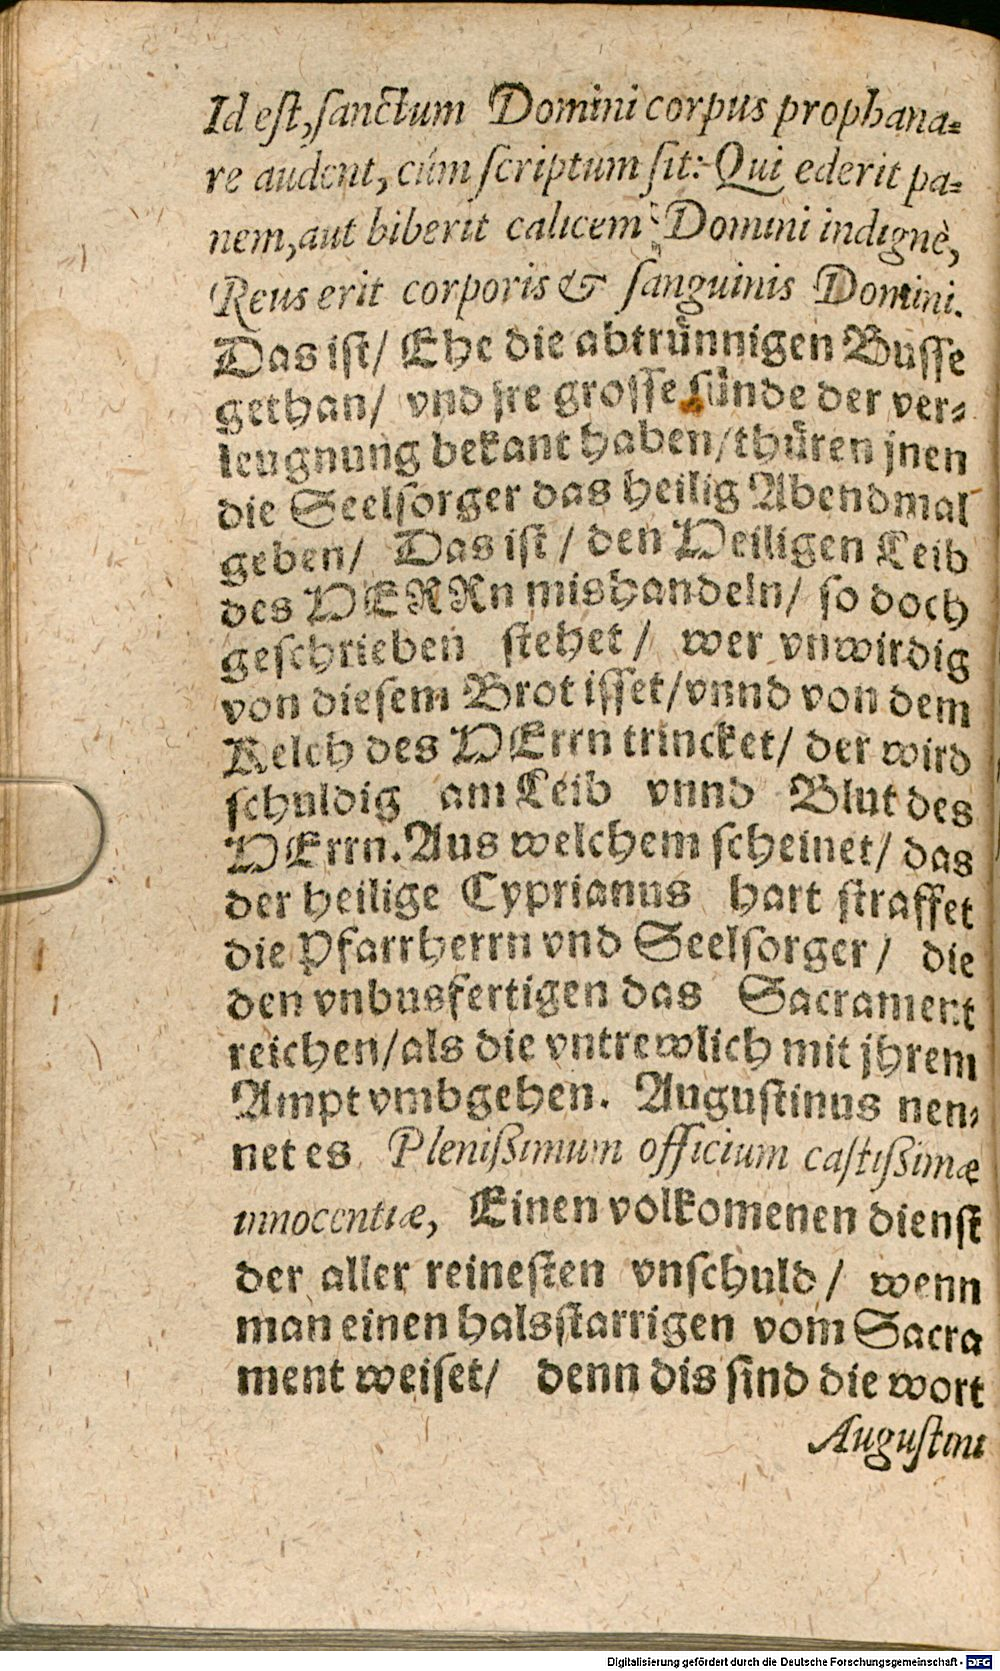 Id eſt, ſanctum Domini corpus prophana⸗
re audent, cúm ſcriptum ſit: Qui ederit pa⸗
nem, aut biberit calicem Domini indignè,
Reus erit corporis & ſanguinis Domini.
Das iſt/ Ehe die abtrünnigen Buſſe
gethan/ vnd jre groſſe ſünde der ver⸗
leugnung bekant haben/ thüren jnen
die Seelſorger das heilig Abendmal
geben/ Das iſt/ den Heiligen Leib
des HERRn mishandeln/ ſo doch
geſchrieben ſtehet/ wer vnwirdig
von dieſem Brot iſſet/ vnnd von dem
Kelch des HErrn trincket/ der wird
ſchuldig am Leib vnnd Blut des
HErrn. Aus welchem ſcheinet/ das
der heilige Cyprianus hart ſtraffet
die Pfarrherrn vnd Seelſorger/ die
den vnbusfertigen das Sacrament
reichen/ als die vntrewlich mit jhrem
Ampt vmbgehen. Auguſtinus nen⸗
net es Pleniſzimum officium caſtiſzimæ
innocentiæ, Einen volkomenen dienſt
der aller reineſten vnſchuld/ wenn
man einen halsſtarrigen vom Sacra
ment weiſet/ denn dis ſind die wort
Auguſtini
Digitalisierung gefördert durch die Deutsche Forschungsgemeinschaft - DFG